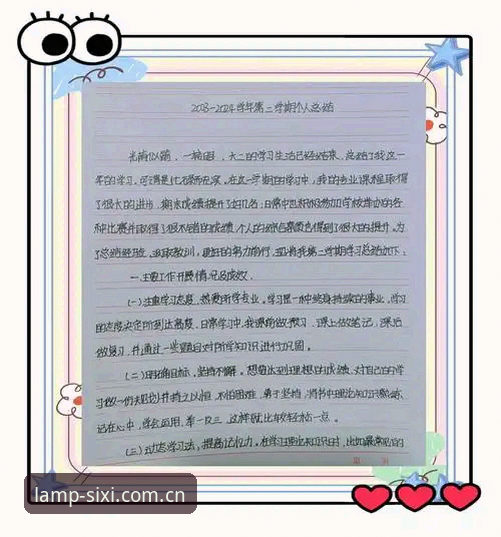 2023-2024学年第二学期个人总结
光阴似箭、一转眼、大二的学习生活已经结束、总结了我这一
年的学习,可谓是忙碌而充实。在这一学期的学习中,我的专业课程取得
了很大的进步,期末成绩提升了好几名;日常中也积极参加学校举办的各
种比赛并取得了很不错的成绩 个人的综合素质也得到了很大的提升。为
了总结经验,汲取教训,更好的努力前行,现将我第二学期学习总结如下:
一.主要工作开展情况及成效.
(一)注重学习态度,热爱所学专业。学习是一种终身持续的事业,学习
的态度决定所到达高度,日常学习中,我课前做预习、课上做笔记,课后
做复习,并通过一些题目对所学知识进行巩固。
(二)明确目标,坚持不懈。想要达到理想的成绩,对自己的学
习做一份规划并持之以恒,不怕困难,勇于坚持,将书中理论知识熟练
记在心中,学会运用,举一反三,这样就比较轻松一点。
(三)探索学习法,提高记忆力。在学习理论知识时,比如最常见的
lamp-sixi.com.cn